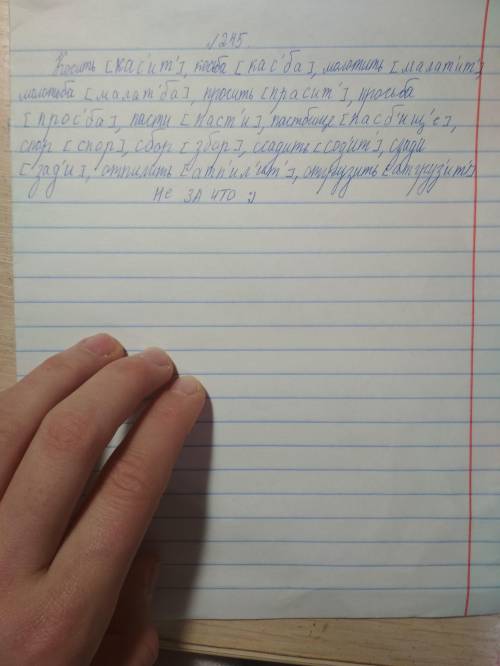 №245.
Косить [кас'ит'], косьба [кас'ба], молотить [малат'ит']
молотьба [малат'ба], просить [прасит'], просьба
[прос'ба], пасти [паст'и], пастбище [пасб'ищ'е],
спор [спор], сбор [збор], сходить [сходит'], сзади
[зад'и], отпилить [атпил'ит'], отгрузить [атгрузит']
НЕ ЗА ЧТО :)